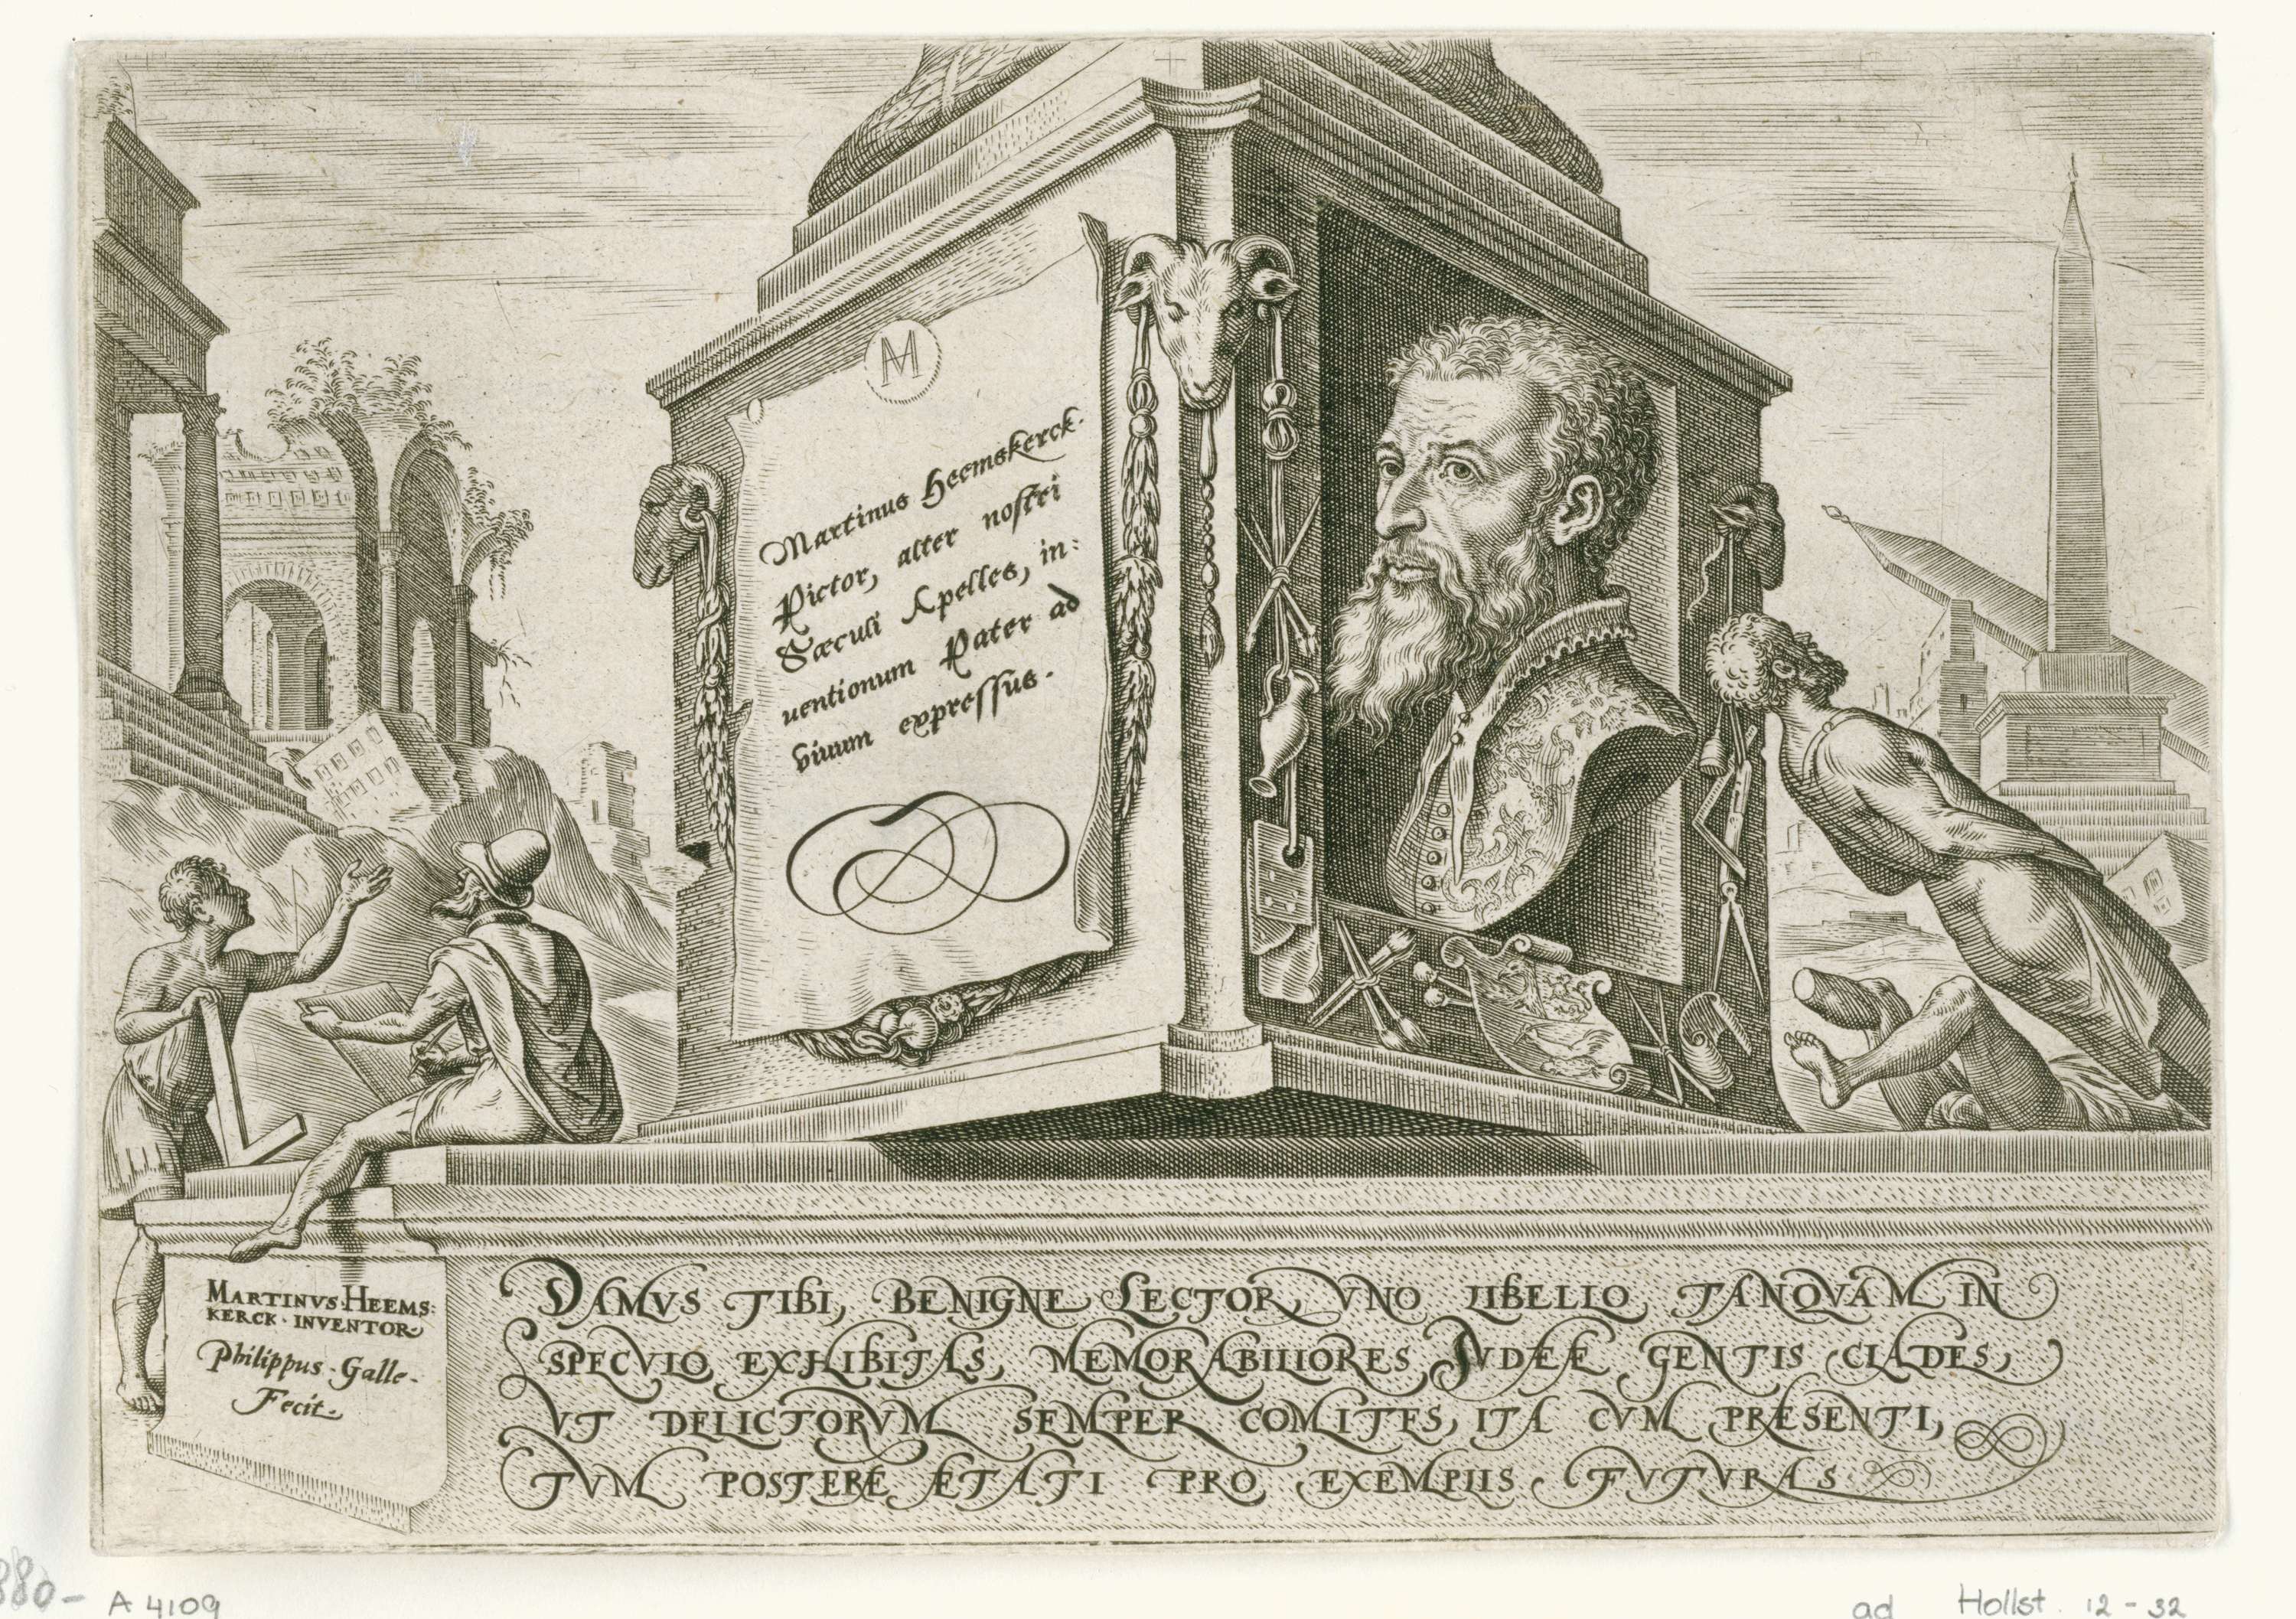 M
Martinus Heemskerck.
Pictor, alter nostri
Sæculi Apelles, in:
uentionum Pater ad
viuum expressus.
MARTINVS HEEMS:
KERCK · INVENTOR
Philippus · Galle ·
Fecit.
DAMVS TIBI, BENIGNE LECTOR, VNO LIBELLO TANQVAM IN
SPECVLO EXHIBITAS, MEMORABILIORES IVDÆÆ GENTIS CLADES,
VT DELICTORVM SEMPER COMITES, ITA CVM PRÆSENTI,
TVM POSTERÆ ÆTATI PRO EXEMPLIS FVTVRAS.
880- A 4109
ad Hollst. 12-32